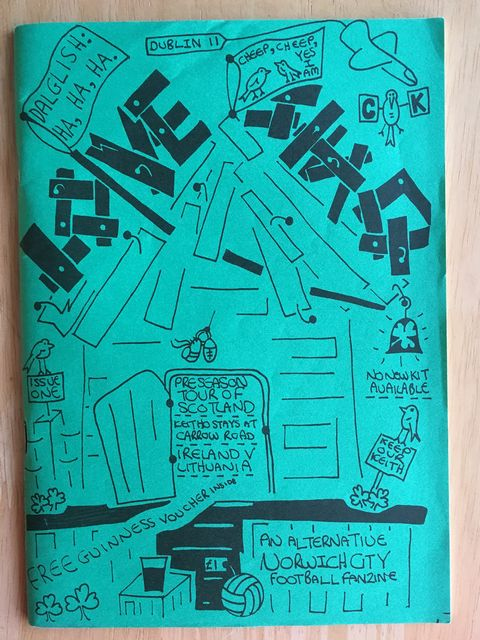 DUBLIN 11
DALGLISH:
HA, HA, HA.
CHEEP, CHEEP,
YES
I
AM
C K
ISSUE
ONE
PRESEASON
TOUR OF
SCOTLAND
KEITHO STAYS AT
CARROW ROAD
IRELAND V
LITHUANIA
NO NEW KIT
AVAILABLE
KEEP
OUR
KEITH
FREE GUINNESS VOUCHER INSIDE
£1
AN ALTERNATIVE
NORWICH CITY
FOOTBALL FANZINE